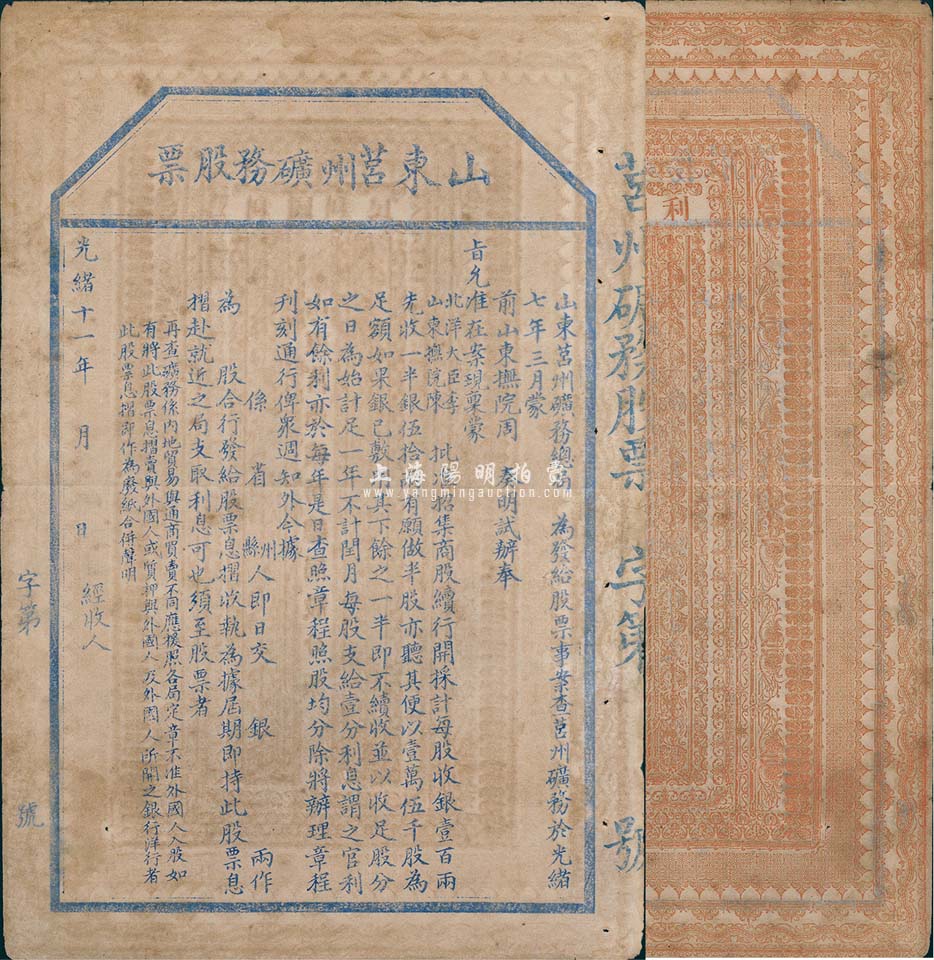 山東莒州礦務股票
山東莒州礦務總局 為發給股票事案查莒州礦務於光緒
七年三月蒙
前山東撫院周 奏明試辦奉
旨允准在案現稟蒙
北洋大臣李
山東撫院陳 批 招集商股續行開採計每股收銀壹百兩
先收一半銀伍拾兩有願做半股亦聽其便以壹萬伍千股為
足額如果銀已敷 其下餘之一半即不續收並以收足股分
之日為始計足一年不計閏月每股支給壹分利息謂之官利
如有餘利亦於每年是日查照章程照股均分除將辦理章程
刊刻通行俾眾週知外今據
係 省 州縣 人即日交 銀 兩作
為 股合行發給股票息摺收執為據屆期即持此股票息
摺赴就近之局支取利息可也須至股票者
再查礦務係內地貿易與通商買賣不同應援照各局定章不准外國人入股如
有將此股票息摺賣與外國人或質押與外國人及外國人所開之銀行洋行者
此股票息摺即作為廢紙合併聲明
光緒十一年 月 日 經收人
字第 號
莒州礦務股票 字第 號
利
上海陽明拍賣
www.yangmingauction.com